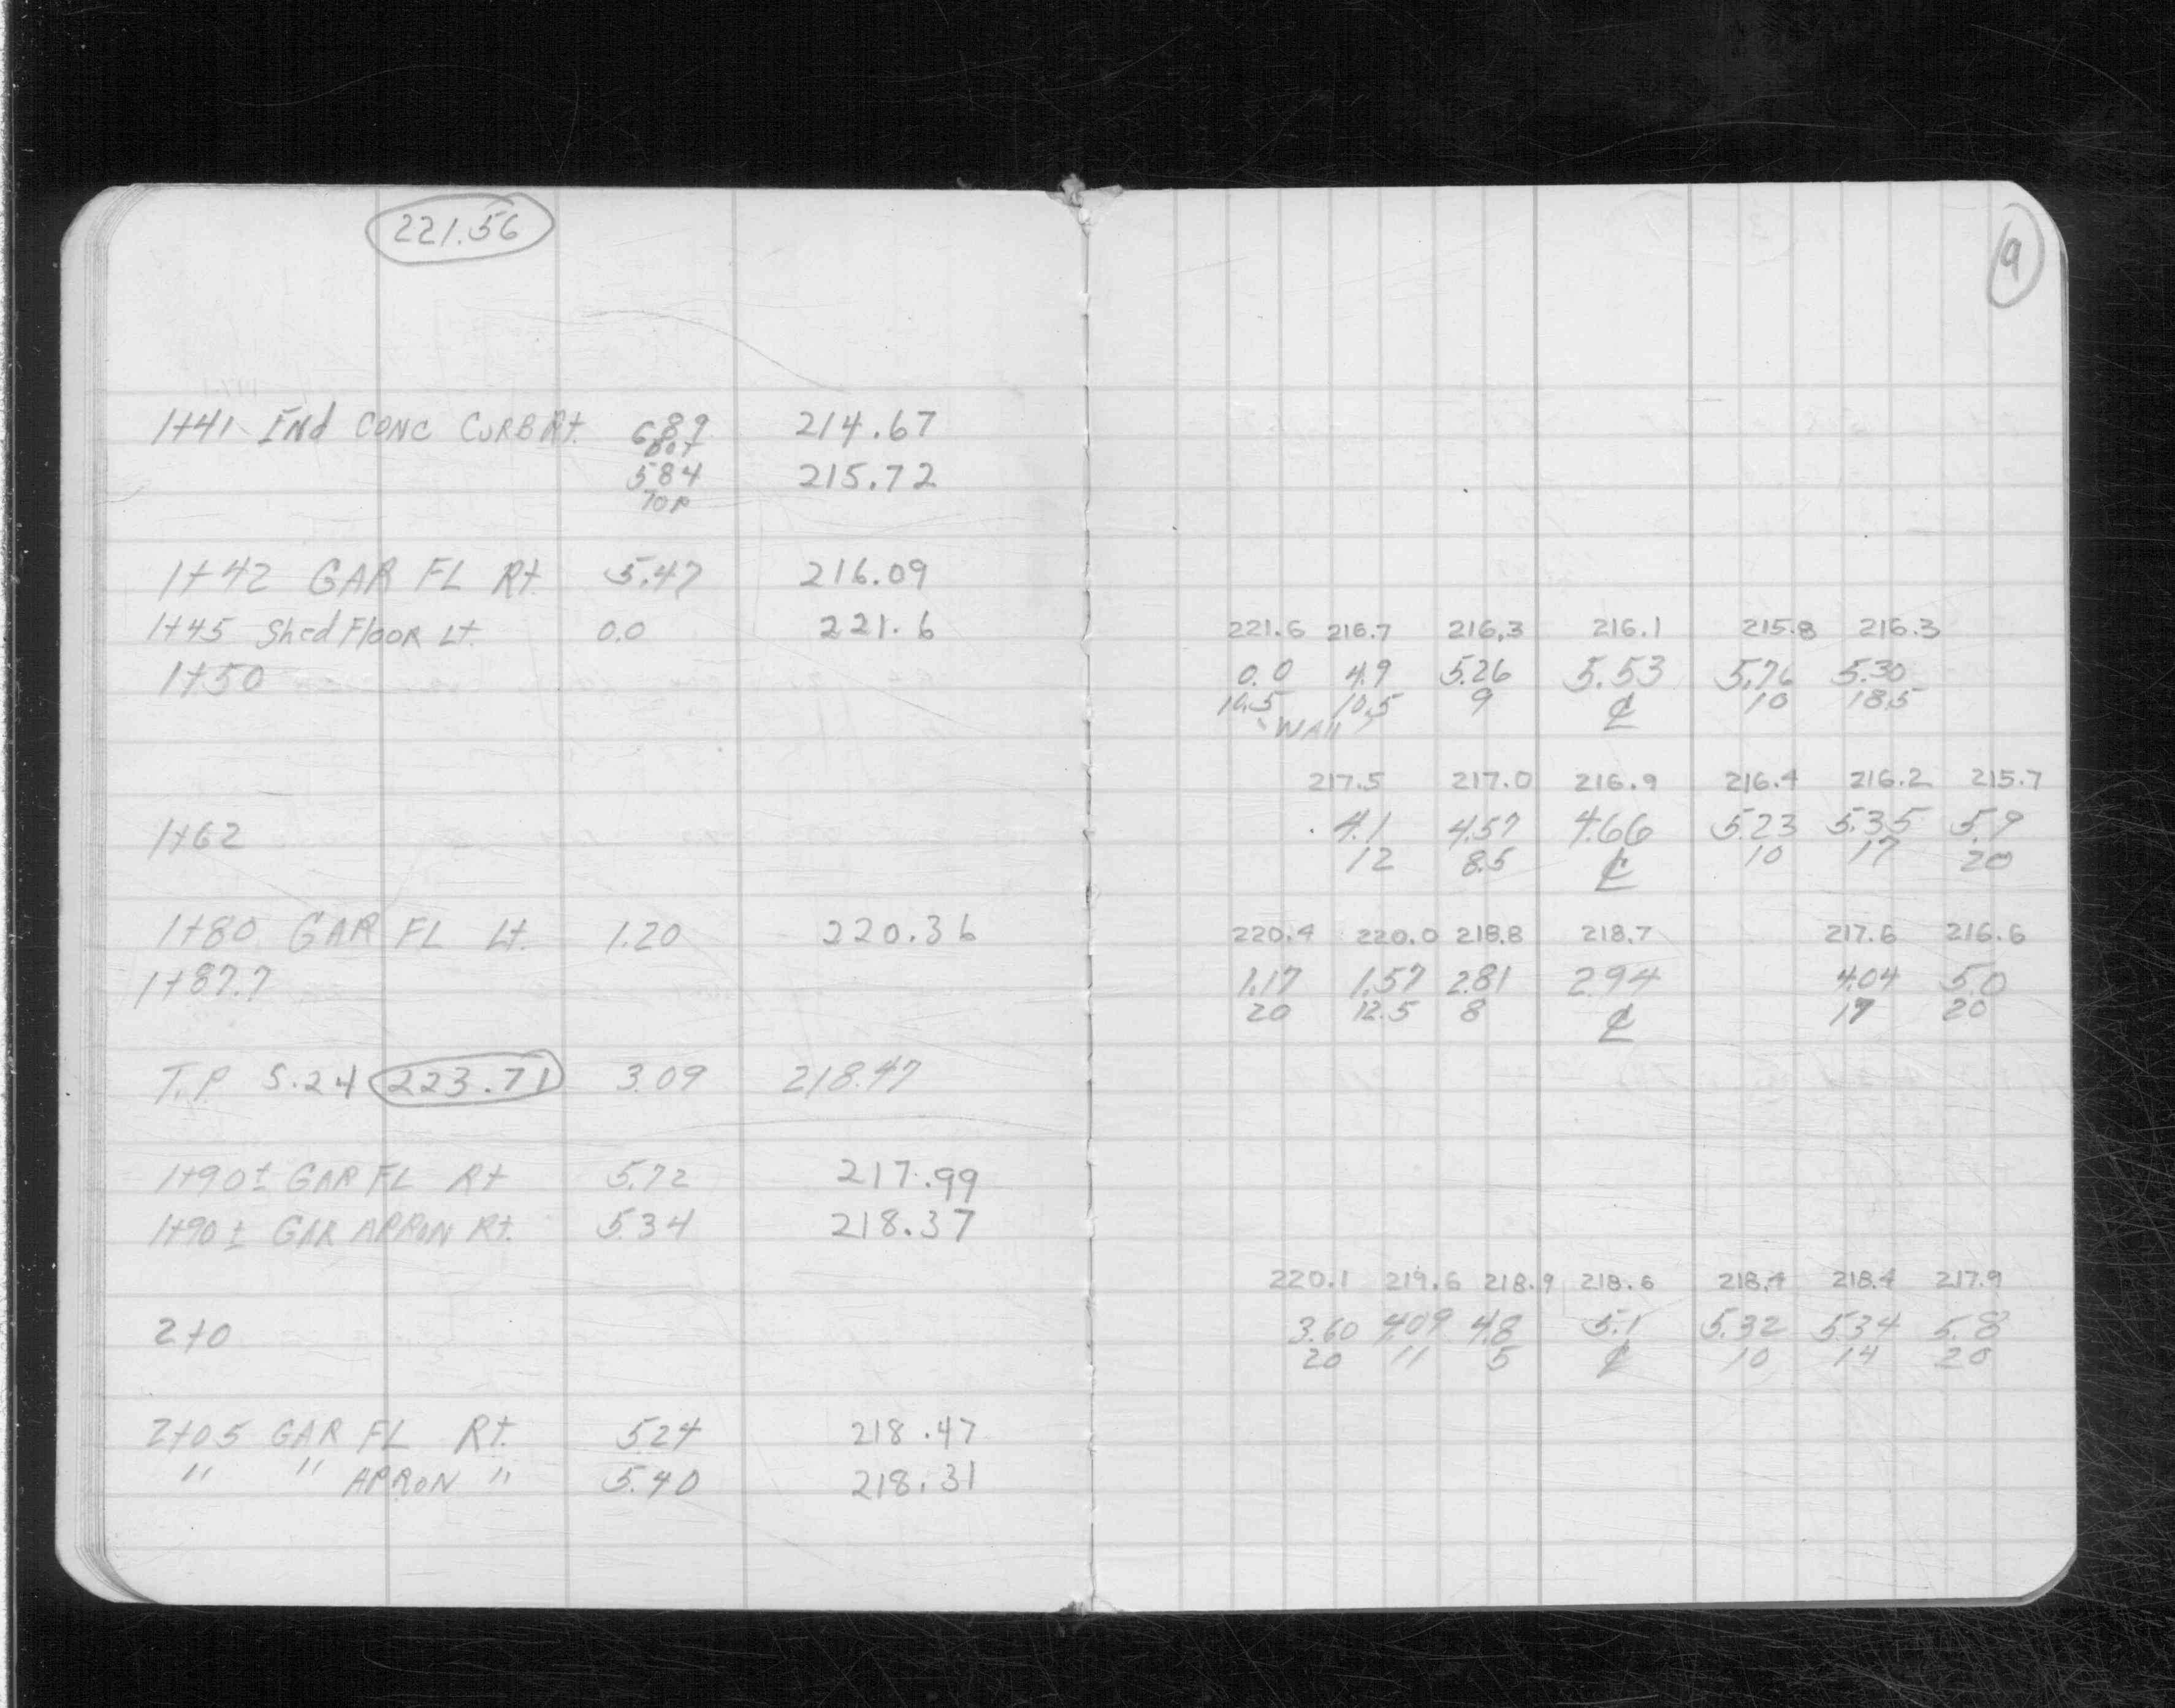 221.56
9
1+41 End CONC CURB Rt. 6.89 214.67
BOT
5.84 215.72
TOP
1+42 GAR FL Rt 5.47 216.09
1+45 Shed Floor Lt. 0.0 221.6
221.6 216.7 216.3 216.1 215.8 216.3
1+50 0.0 4.9 5.26 5.53 5.76 5.30
10.5 10.5 9 ℄ 10 18.5
WAll
217.5 217.0 216.9 216.4 216.2 215.7
1+62 4.1 4.57 4.66 5.23 5.35 5.9
12 8.5 ℄ 10 17 20
1+80 GAR FL Lt. 1.20 220.36
220.4 220.0 218.8 218.7 217.6 216.6
1+87.7 1.17 1.57 2.81 2.94 4.04 5.0
20 12.5 8 ℄ 17 20
T.P. 5.24 223.71 3.09 218.47
1+90± GAR FL Rt 5.72 217.99
1+90± GAR APRON Rt. 5.34 218.37
220.1 219.6 218.9 218.6 218.4 218.4 217.9
2+0 3.60 4.09 4.8 5.1 5.32 5.34 5.8
20 11 5 ℄ 10 14 20
2+05 GAR FL Rt. 5.24 218.47
" " APRON " 5.40 218.31